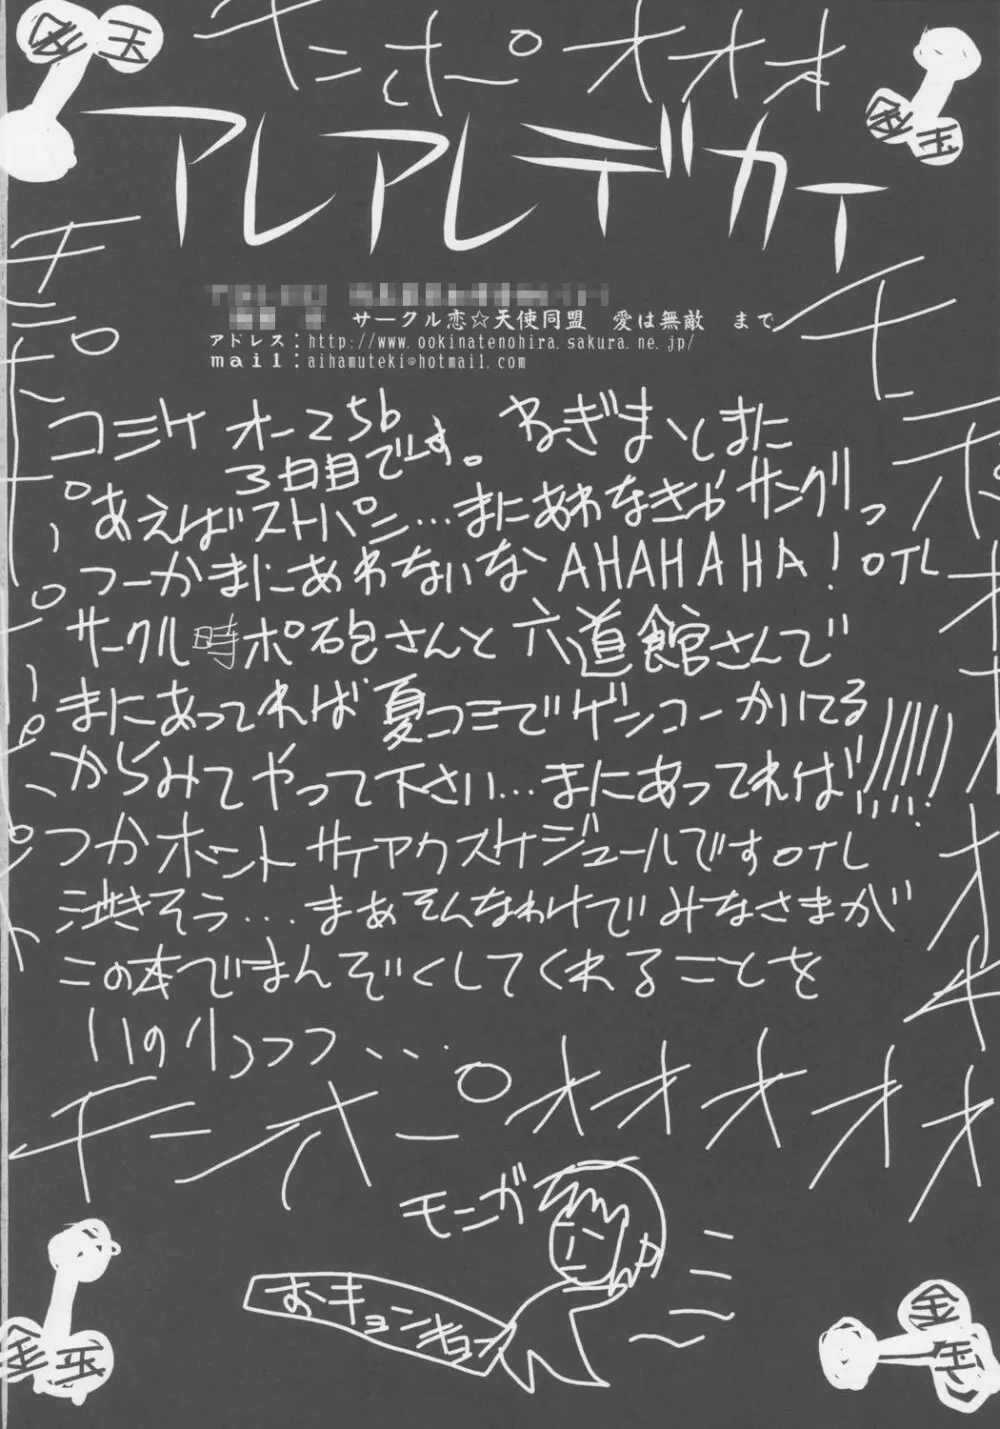 金玉
チンポーオオオ
金玉
アレアレデカイ
サークル恋☆天使同盟　愛は無敵　まで
アドレス：http://www.ookinatenohira.sakura.ne.jp/
mail：aihamuteki@hotmail.com
コミケ オーこ56　ねぎまといまに
3日目です。
あえばストパン…まにあわなきゃサングリっ
つーかまにあわないな AHAHAHA! OTL
サークル時ポ砲さんと六道館さんで
まにあってれば夏コミでゲンコーかいてる
からみてやって下さい…まにあってれば!!!!!
つかホントサイアクスケジュールですOTL
泣きそう…まあそんなわけでみなさまが
この本でまんぞくしてくれることを
いのりつつっ…
チンポーオオオオオオ
モニガ
おキョンキョン
金玉
金玉